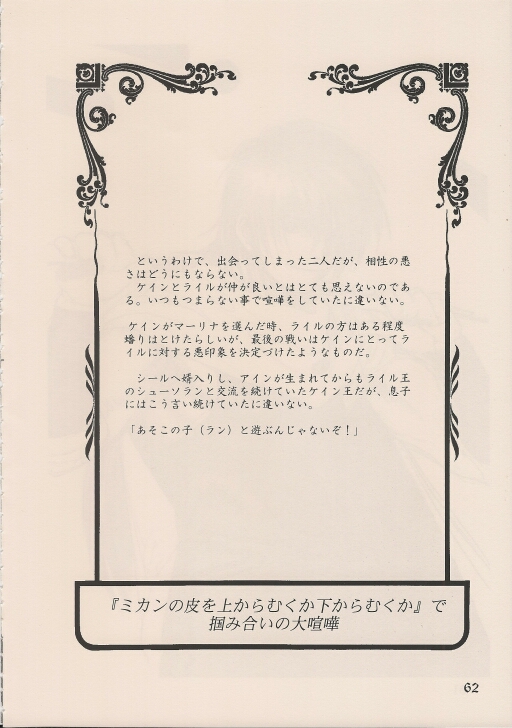 というわけで、出会ってしまった二人だが、相性の悪
さはどうにもならない。
ケインとライルが仲が良いとはとても思えないのであ
る。いつもつまらない事で喧嘩をしていたに違いない。
ケインがマーリナを選んだ時、ライルの方はある程度
蟠りはとけたらしいが、最後の戦いはケインにとってラ
イルに対する悪印象を決定づけたようなものだ。
シールへ婿入りし、アインが生まれてからもライル王
のシューソランと交流を続けていたケイン王だが、息子
にはこう言い続けていたに違いない。
「あそこの子（ラン）と遊ぶんじゃないぞ！」
『ミカンの皮を上からむくか下からむくか』で
掴み合いの大喧嘩
62